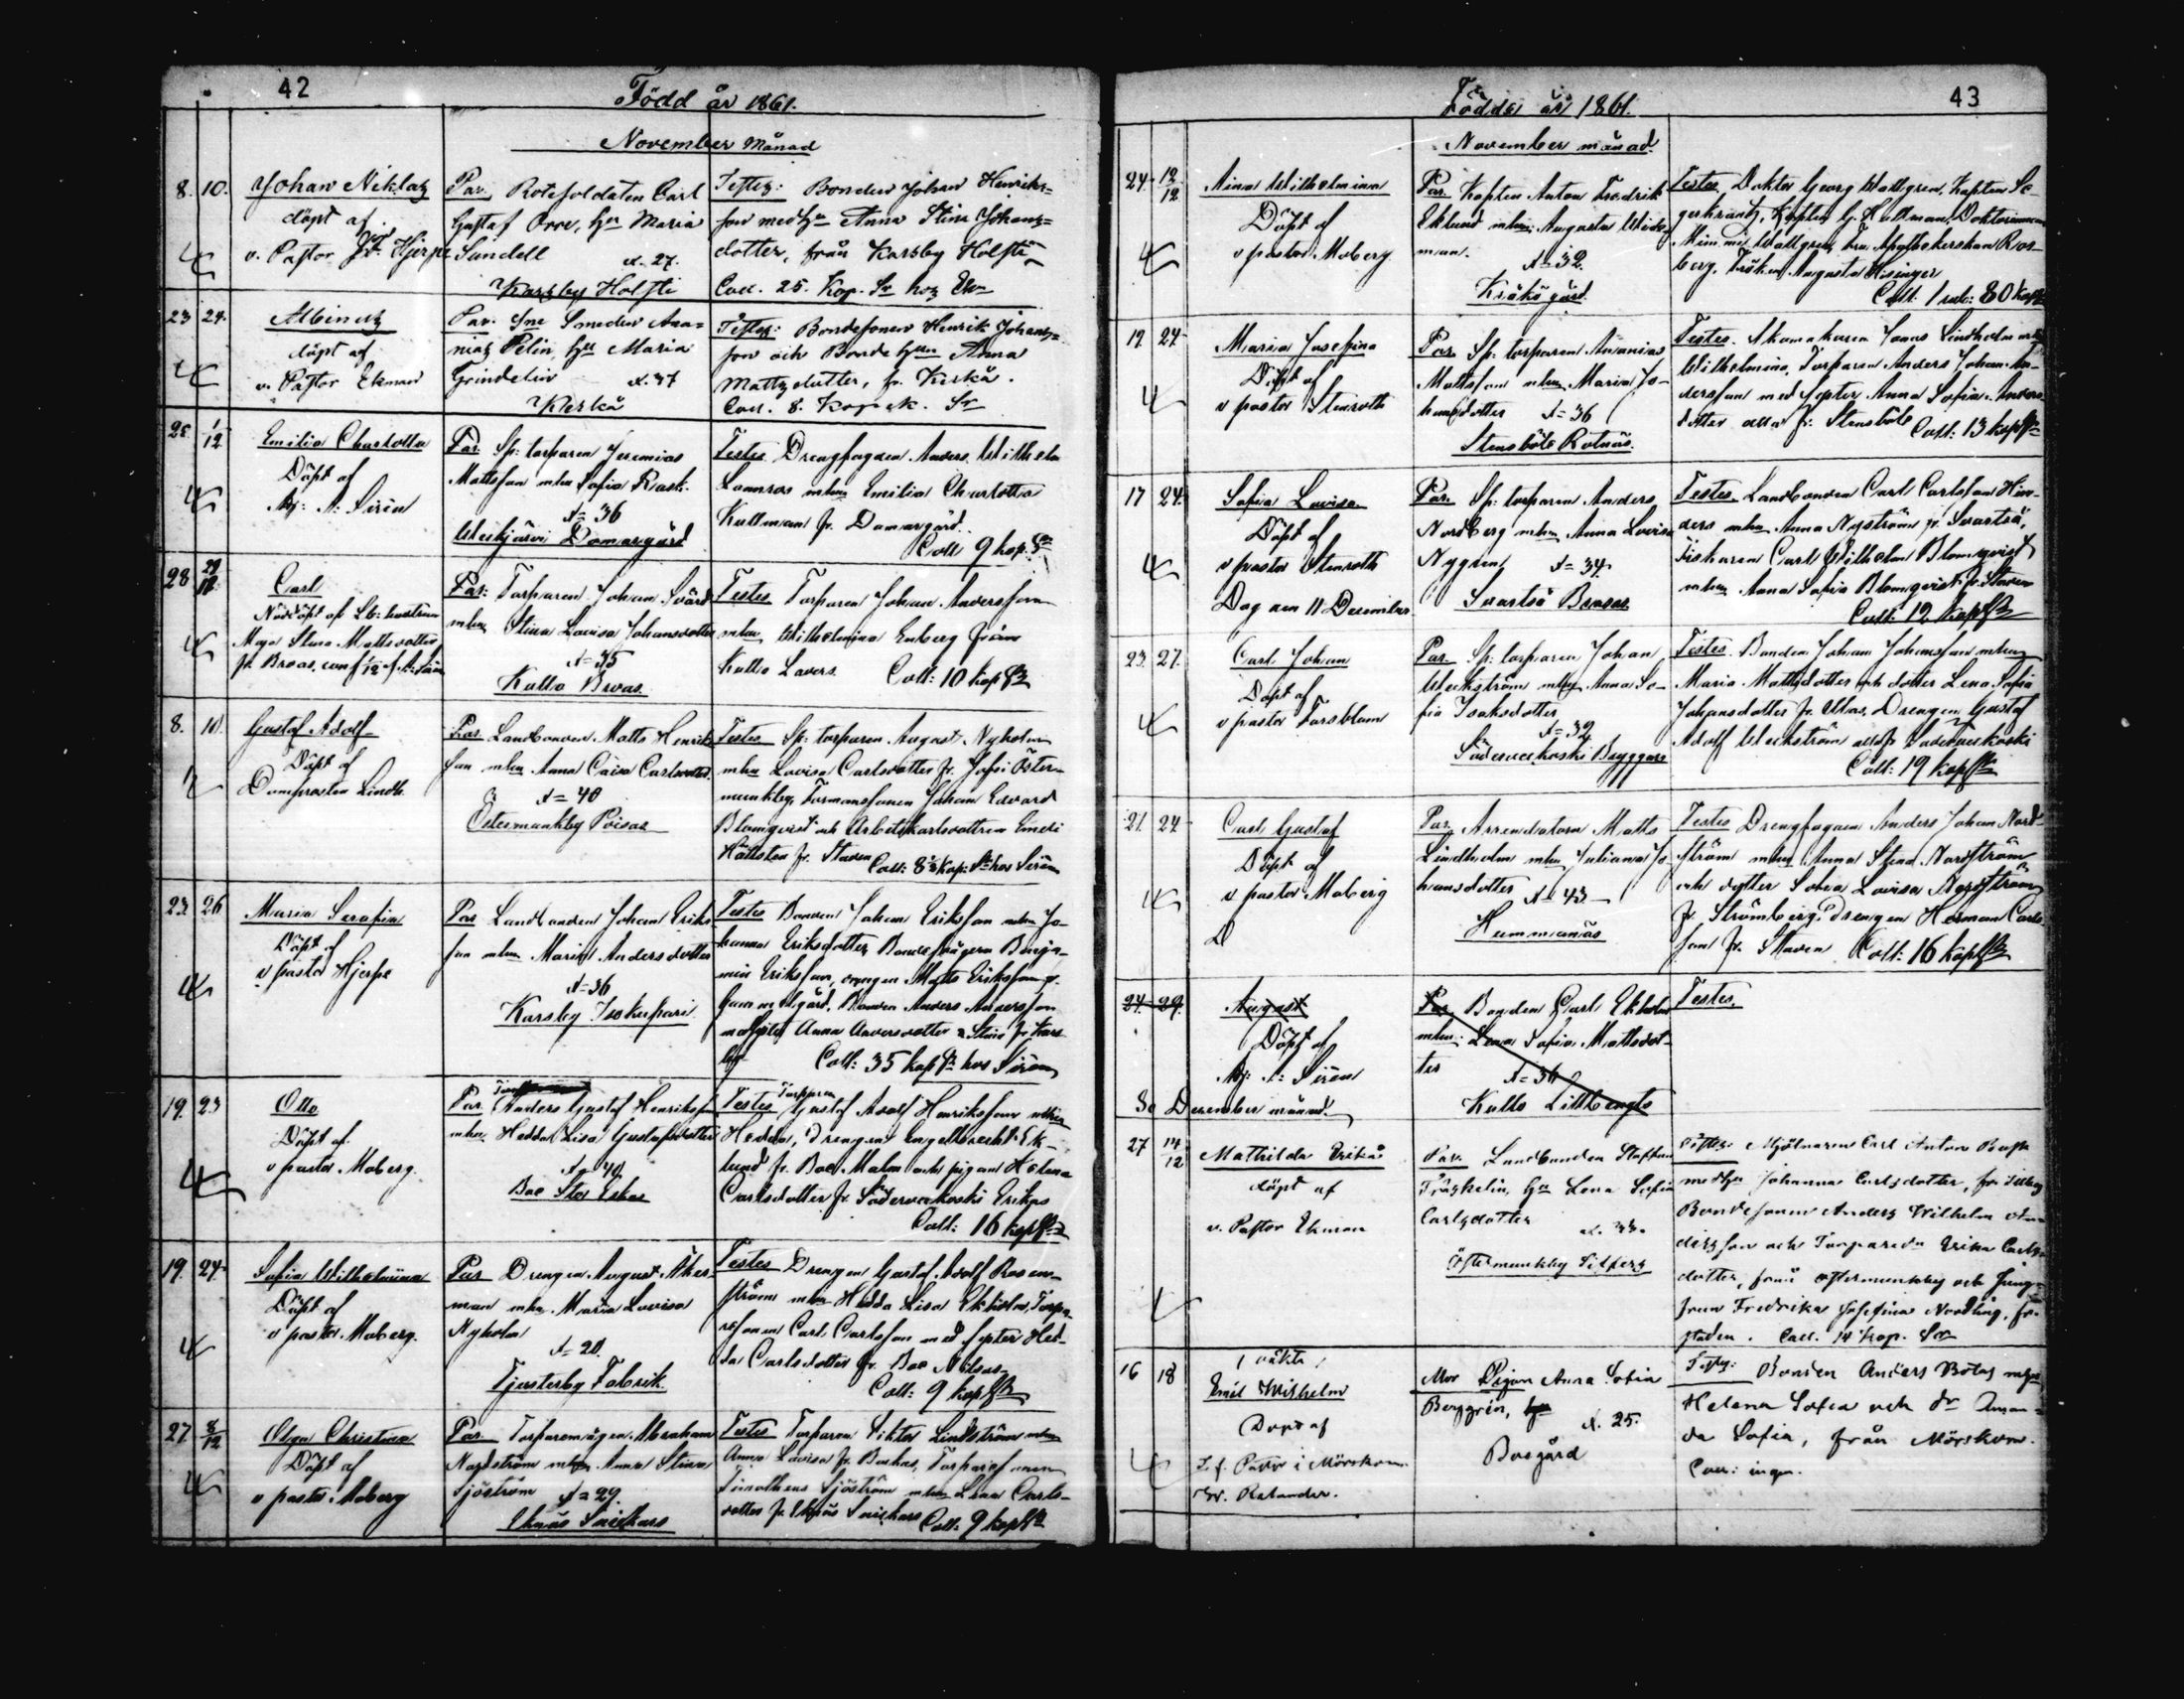 42
Född år 1861.
November månad
8. 10. Johan Niklas
döpt af
v. Pastor Hjerpe
Par. Rotesoldaten Carl
Gustaf Orre, hu Maria
Sundell
d. 27.
Karsby Holsti
Testes: Bonden Johan Henriks=
son med hu Anna Stina Johans=
dotter, från Karsby Holsti
Coll. 25. Kop. Sr hos Ekn
23 24. Albinus
döpt af
v. Pastor Ekman
Par. Sne Smeden Ana=
nias Pelin, hu Maria
Grindelin d. 37
Kerkå
Testes: Bondesonen Henrik Johans=
son och Bonde hun Anna
Mattsdotter, fr. Kerkå.
Coll. 8. Kopek. Sr
28 1/12 Emilia Charlotta
Döpt af
Adj: A: Sirén
Par. Sp: torparen Jeremias
Mattsson mhu Sofia Rask.
d= 36
Weckjärvi Domargård
Testes Drengfogden Anders Wilhelm
Lönnros mhu Emilia Charlotta
Kullman fr. Domargård.
Coll 9 kop. Sr
28 Carl
Nöddöpt af
Maja Stina Mattsdotter
fr. Broas, conf
Par: Torparen Johan Svärd
mhu Stina Lovisa Johansdotter
d= 35
Kullo Broas
Testes Torparen Johan Andersson
mhu Wilhelmina Enberg från
Kullo Lavers. Coll: 10 kop Sr
8. 10. Gustaf Adolf
Döpt af
Domprosten Lindh.
Par Landbonden Matts Henriks
son mhu Anna Caisa Carlsdotter.
d= 40
Östermunkby Poisas
Testes Sp: torparen August Nyholm
mhu Lovisa Carlsdotter fr. Öster-
munkby, Formanssonen Johan Edvard
Blomqvist och Arbetskarlsdottren
Hällsten fr. Staden Coll: 8½ Kop: Sr hos Sirén
23 26 Maria Serafia
Döpt af
v pastor Hjerpe
Par Landbonden Johan Eriks
son mhu Maria Andersdotter
d= 36
Karsby
Testes Bonden Johan Eriksson mhu Jo-
hanna Eriksdotter, Bonde mågen Benja-
min Eriksson, drengen Matts Eriksson fr.
Bonden Anders Andersson
Anna Andersdotter fr Kars
by Coll: 35 kop Sr hos Sirén
19. 23 Otto
Döpt af
v pastor Moberg.
Par. Anders Gustaf Henriksson
mhu Hedda Lisa Gustafsdotter
d= 40
Boe Stor Eskas
Testes Torparen Gustaf Adolf Henriksson mhu
Hedda, drengen Engelbrecht Ek-
lund fr. Boe Malm och pigan Helena
Carlsdotter fr. Söderveckoski Erikas
Coll: 16 kop Sr
19. 24 Sofia Wilhelmina
Döpt af
v pastor Moberg.
Par Drengen August Åker-
man mhu Maria Lovisa
Nyholm
d= 20.
Tjusterby Fabrik.
Testes Drengen Gustaf Adolf Rosen-
ström mhu Hedda Lisa Ekholm, Torpa-
resonen Carl Carlsson med syster Hed-
da Carlsdotter fr. Boe Nilsas
Coll: 9 kop Sr
27. 8/12 Olga Christina
Döpt af
v pastor Moberg
Par. Torparemågen Abraham
Nordström mhu Anna Stina
Sjöström d= 29.
Eknäs Snickars
Testes Torparen Viktor Lindström mhu
Anna Lovisa fr. Backas, Torparesonen
Timotheus Sjöström mhu Lena Carls-
dotter fr. Eknäs Snickars Coll: 9 kop Sr
43
Födde år 1861.
November månad.
24. 12/12 Mina Wilhelmina
Döpt af
v pastor Moberg
Par. Kapten Anton Fredrik
Eklund mhu Augusta Wide-
man.
d= 32.
Kråkö gård.
Testes, Doktor Georg Wallgren, Kapten Se-
gerkrantz, Kapten G. Hultman, Doktorinnan
Mimmi Wallgren, fru Apothekerskan Ros-
berg, Fröken Augusta Hisinger
Coll: 1 rub: 80 kop
19. 24 Maria Josefina
Döpt af
v pastor Stenroth
Par Sp: torparen Ananias
Mattsson mhu Maria Jo-
hansdotter d= 36
Stensböle Rotnäs.
Testes. Skomakaren Jonas Lindholm
Wilhelmina, Torparen Anders Johan An-
dersson med syster Anna Sofia Anders-
dotter alla fr: Stensböle Coll: 13 kop Sr
17 24. Sofia Lovisa
Döpt af
v pastor Stenroth
Dog den 11 December
Par. Sp: torparen Anders
Nordberg mhu Anna Lovisa
Nygren d= 34
Svartsä Bransas
Testes. Landbonden Carl Carlsson Hin-
ders mhu Anna Nyström fr. Svartså,
Fiskaren Carl Wilhelm Blomqvist
mhu Anna Sofia Blomqvist fr. Staden
Coll: 12 kop Sr
23. 27. Carl Johan
Döpt af
v pastor Forsblom
Par. Sp: torparen Johan
Weckström mhu Anna So-
fia Isaksdotter
d= 32
Söderveckoski Bryggars
Testes. Bonden Johan Johansson mhu
Maria Mattsdotter och dotter Lena Sofia
Johansdotter fr. Drengen Gustaf
Adolf Weckström Söderveckoski
Coll: 19 kop Sr
21. 24 Carl Gustaf
Döpt af
v pastor Moberg
D
Par. Arrendatorn Matts
Lindholm mhu Juliana Jo-
hansdotter d= 43
Hummanäs
Testes Drengfogden Anders Johan Nord-
ström mhu Anna Stina Nordström
och dotter Sofia Lovisa Nordström
fr. Strömsberg, drengen Herman Carls-
son fr. Staden Coll: 16 kop Sr
24. 29. August
Döpt af
Adj: A: Sirén
Par Bonden Carl Ekholm
mhu Lena Sofia Mattsdot-
ter
d= 36
Kullo Lillbengts
Testes.
30 December månad.
27 14/12 Mathilda Erika
döpt af
v. Pastor Ekman
Par. Landbonden Staffan
Träskelin, hu Lena Sofia
Carlsdotter d. 33.
Östermunkby Silfers
Testes. Mjölnaren Carl Anton
med hu Johanna Carlsdotter, fr.
Bondesonen Anders Wilhelm An-
dersson och Torpare du Erika Carls-
dotter, från Östermunkby och Jung-
frun Fredrika Josefina Nordling, fr.
staden. Coll. 14 kop. Sr
16 18 / oäkta /
Emil Wilhelm
Döpt af
T.f. Pastor i Mörskom
Relander.
Mor Pigan Anna Sofia
Berggrén, d. 25.
Bosgård
Testes: Bonden Anders Botas mhu
Helena Sofia och dr Aman=
da Sofia, från Mörskom.
Coll: ingen.